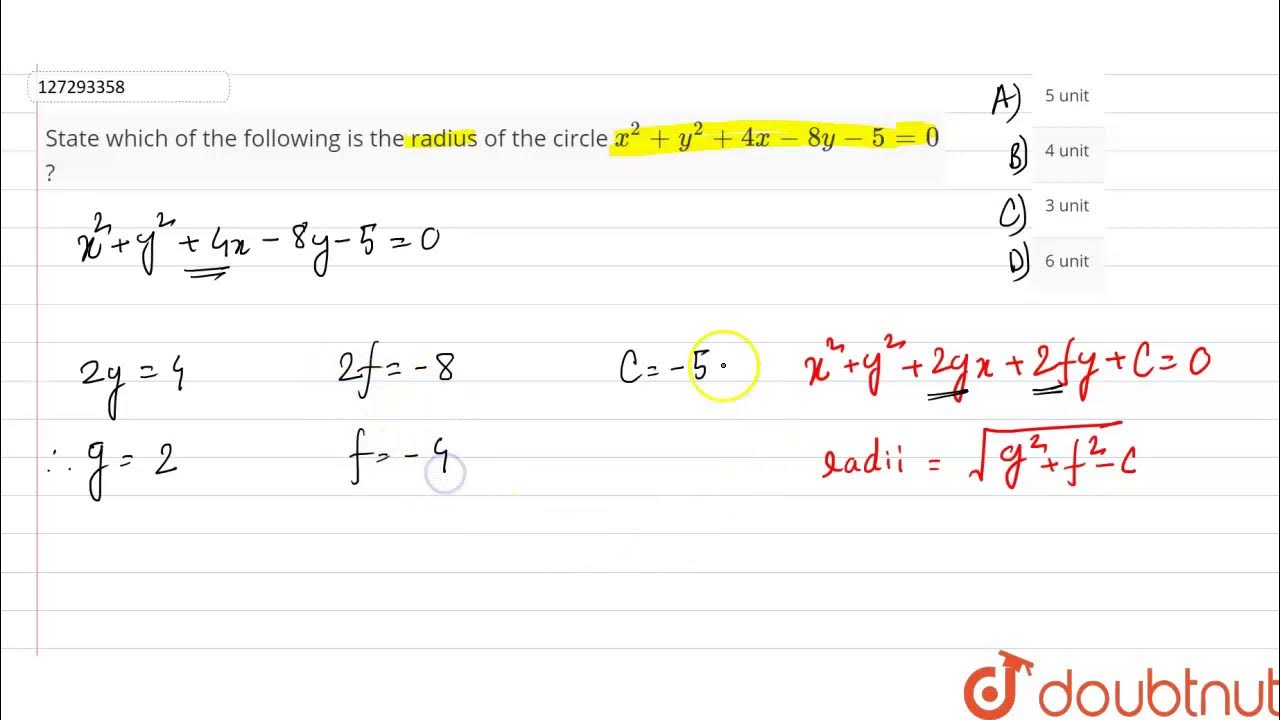 127293358
State which of the following is the radius of the circle x² + y² + 4x − 8y − 5 = 0
?
A) 5 unit
B) 4 unit
C) 3 unit
D) 6 unit
x² + y² + 4x − 8y − 5 = 0
2g = 4 2f = −8 C = −5 x² + y² + 2gx + 2fy + C = 0
∴ g = 2 f = −4 radii = √g² + f² − C
doubtnut